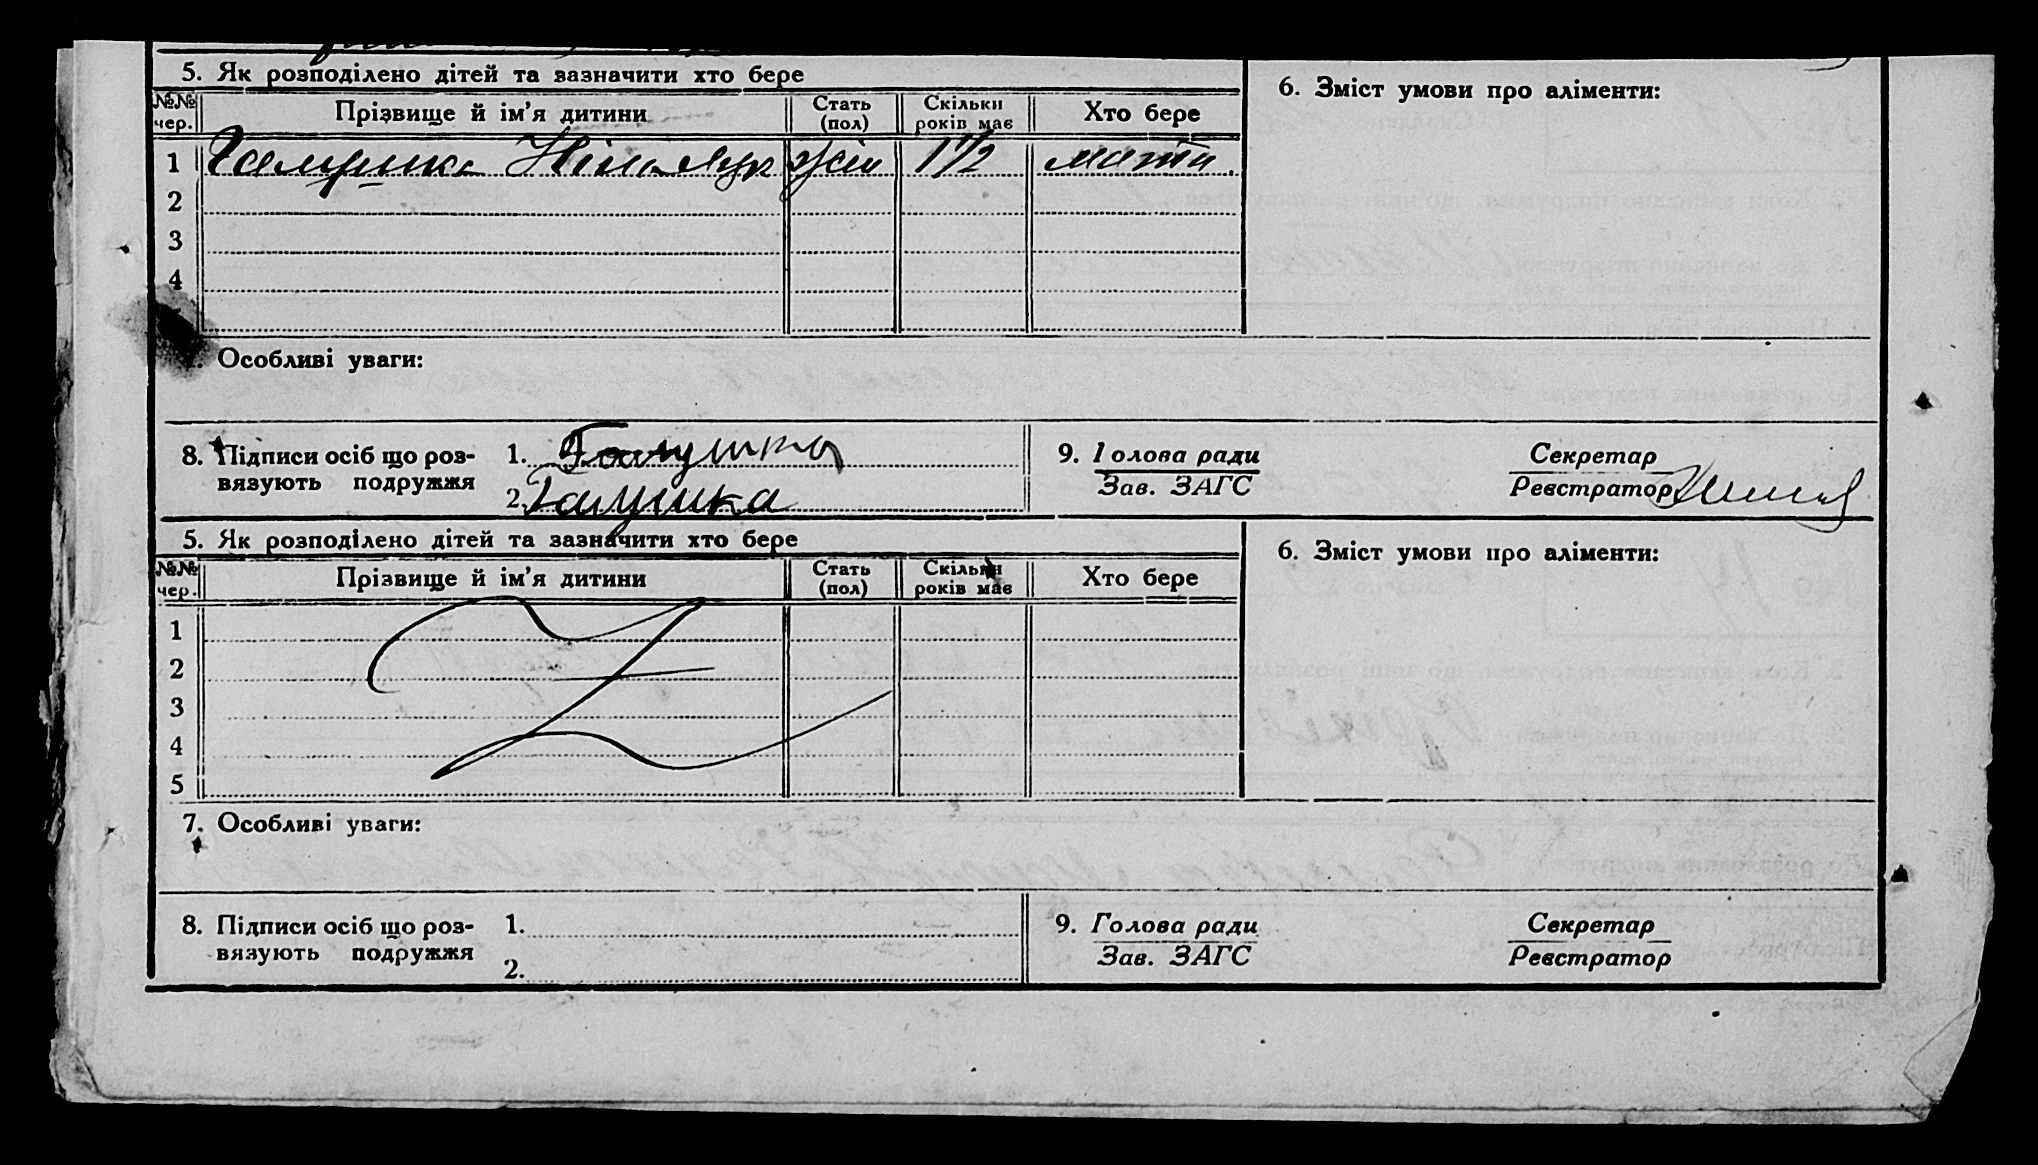 5. Як розподілено дітей та зазначити хто бере
№№ чер. Прізвище й ім'я дитини Стать (пол) Скільки років має Хто бере
1 Галушка Ніна жін 1 1/2 мати.
2
3
4
6. Зміст умови про аліменти:
Особливі уваги:
8. Підписи осіб що роз-
вязують подружжя
1. Галушка
2. Галушка
9. Голова ради
Зав. ЗАГС
Секретар
Реєстратор
5. Як розподілено дітей та зазначити хто бере
№№ чер. Прізвище й ім'я дитини Стать (пол) Скільки років має Хто бере
1
2
3
4
5
6. Зміст умови про аліменти:
7. Особливі уваги:
8. Підписи осіб що роз-
вязують подружжя
1.
2.
9. Голова ради
Зав. ЗАГС
Секретар
Реєстратор